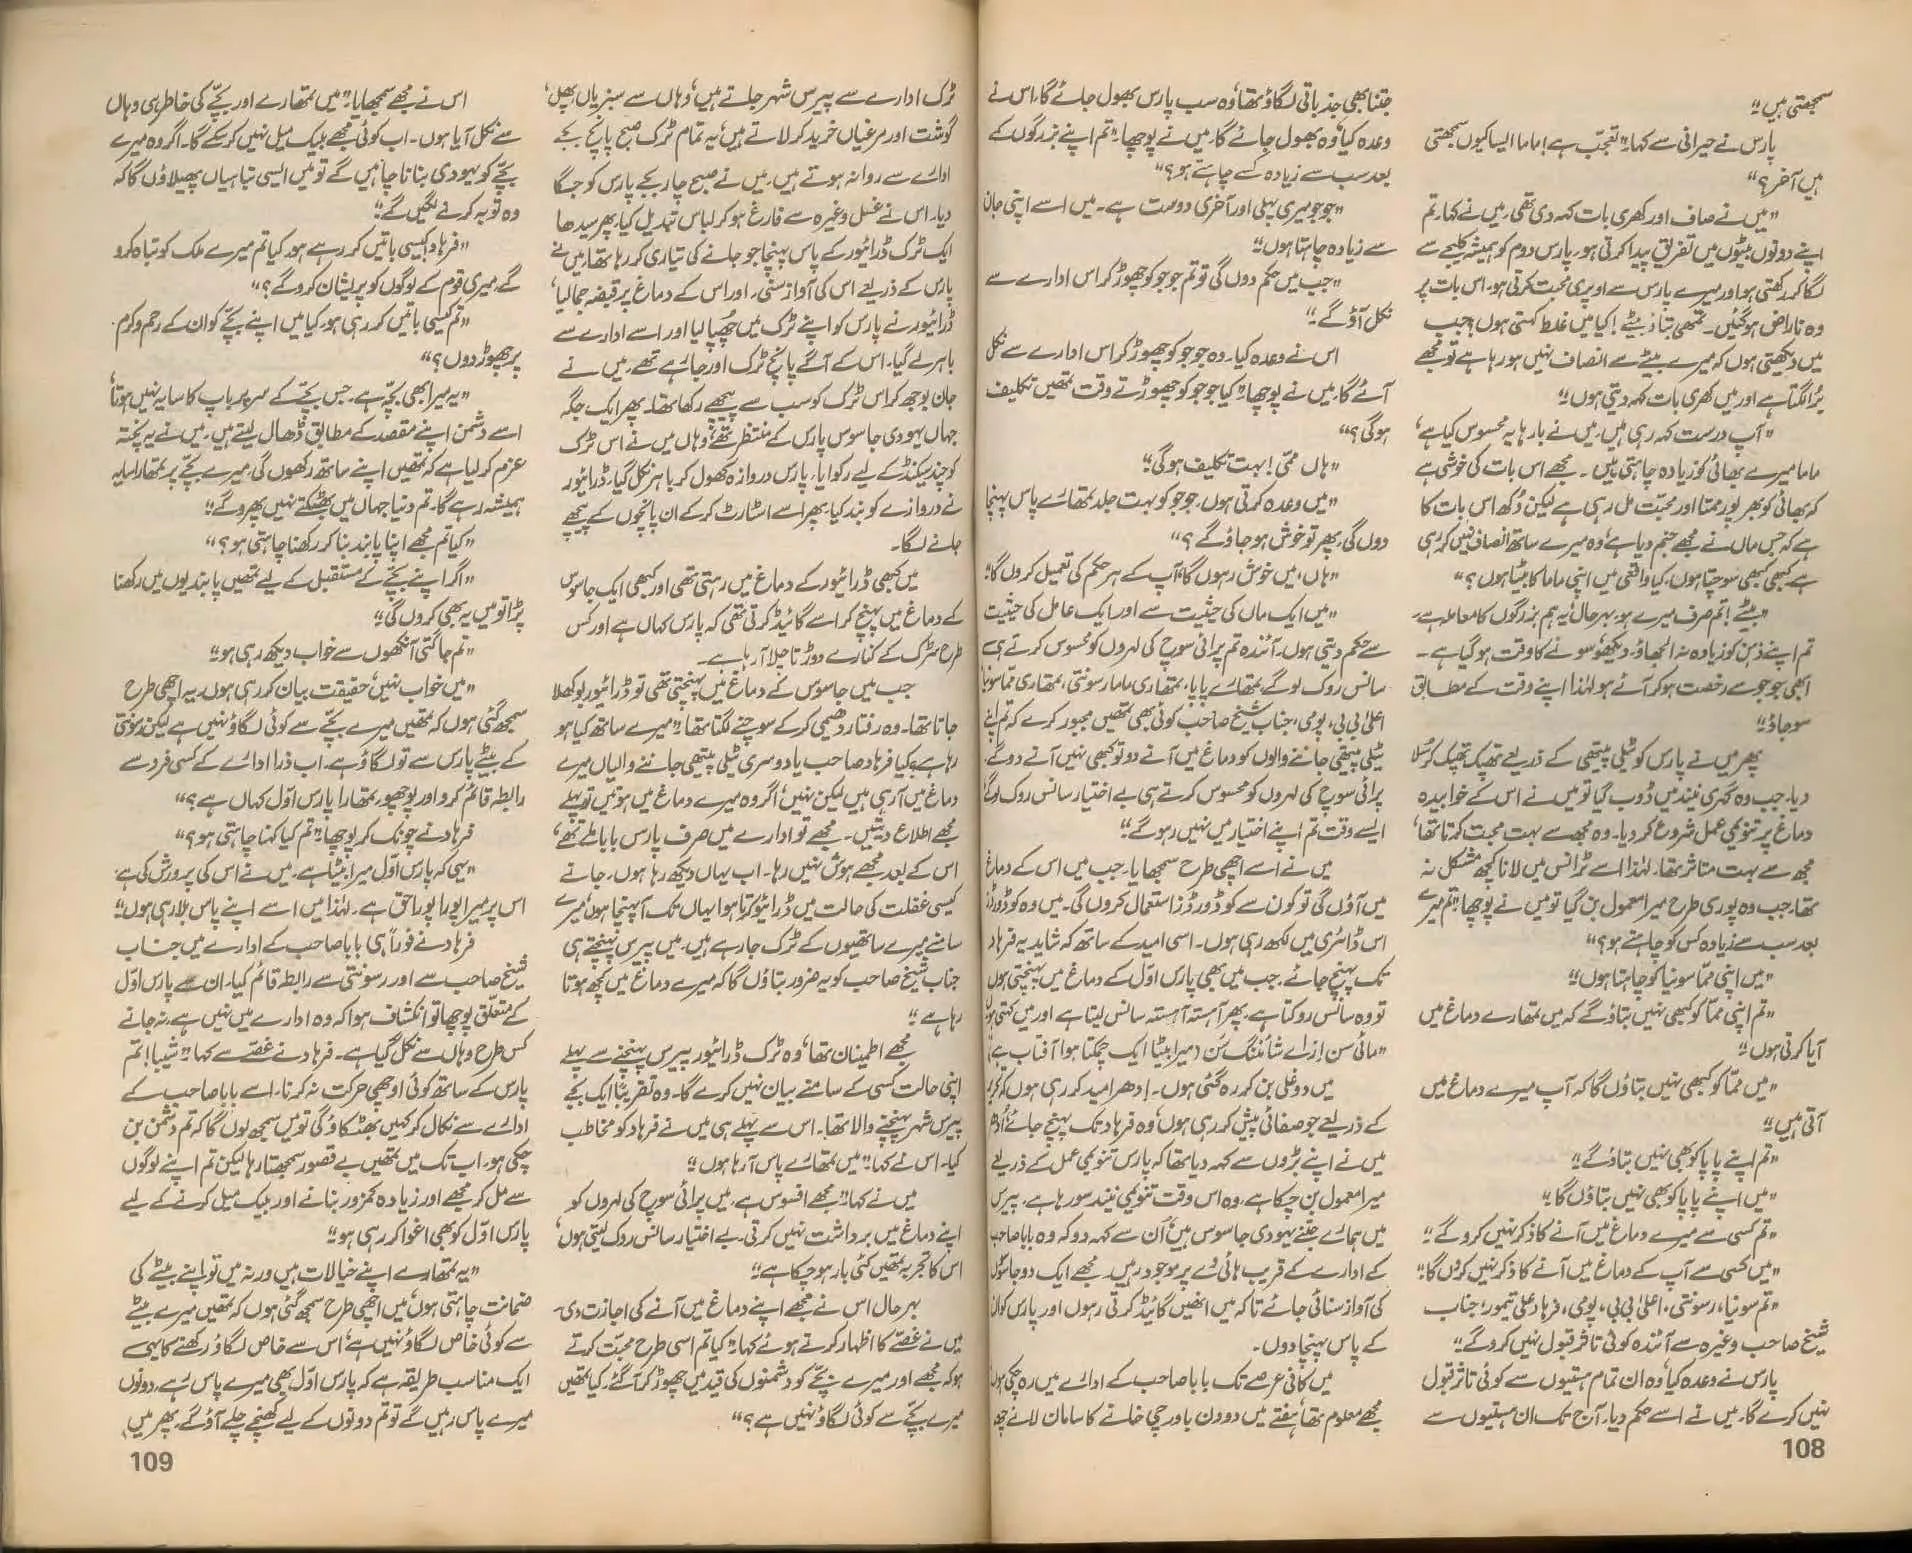 سمجھتی ہیں؟"
پارس نے حیرانی سے کہا: "تعجب ہے! ماما ایسا کیوں سمجھتی
ہیں آخر؟"
"میں نے صاف اور کھری بات کہہ دی تھی، میں نے کہا، تم
اپنے دونوں بیٹوں میں تفریق پیدا کرتی ہو۔ پارس دوم کو ہمیشہ کلیجے سے
لگا کر رکھتی ہو اور میرے پارس سے اوپری محبت کرتی ہو۔ اس بات پر
وہ ناراض ہوگئیں۔ تمہی بتاؤ بیٹے! کیا میں غلط کہتی ہوں؟ جب
میں دیکھتی ہوں کہ میرے بیٹے سے انصاف نہیں ہو رہا ہے تو مجھے
بُرا لگتا ہے اور میں کھری بات کہہ دیتی ہوں۔"
"آپ درست کہہ رہی ہیں، میں نے بارہا یہ محسوس کیا ہے،
ماما میرے بھائی کو زیادہ چاہتی ہیں ۔ مجھے اس بات کی خوشی ہے
کہ بھائی کو بھرپور ممتا اور محبت مل رہی ہے لیکن دُکھ اس بات کا
ہے کہ جس ماں نے مجھے جنم دیا ہے، وہ میرے ساتھ انصاف نہیں کر رہی
ہے کبھی کبھی سوچتا ہوں، کیا واقعی میں اپنی ماما کا بیٹا ہوں؟"
"بیٹے! تم صرف میرے ہو، بہرحال یہ ہم بزرگوں کا معاملہ ہے۔
تم اپنے ذہن کو زیادہ نہ الجھاؤ، دیکھو، سونے کا وقت ہوگیا ہے ۔
ابھی جوجو سے رخصت ہو کر آئے ہو لہٰذا اپنے وقت کے مطابق
سو جاؤ۔"
پھر میں نے پارس کو ٹیلی پیتھی کے ذریعے تھپک تھپک کر سُلا
دیا۔ جب وہ گہری نیند میں ڈوب گیا تو میں نے اس کے خوابیدہ
دماغ پر تنویمی عمل شروع کر دیا۔ وہ مجھ سے بہت محبت کرتا تھا،
مجھ سے بہت متاثر تھا۔ لہٰذا اسے ٹرانس میں لانا کچھ مشکل نہ
تھا۔ جب وہ پوری طرح میرا معمول بن گیا تو میں نے پوچھا، "تم میرے
بعد سب سے زیادہ کس کو چاہتے ہو؟"
"میں اپنی ممّا سونیا کو چاہتا ہوں۔"
"تم اپنی ممّا کو کبھی نہیں بتاؤ گے کہ میں تمھارے دماغ میں
آیا کرتی ہوں۔"
"میں ممّا کو کبھی نہیں بتاؤں گا کہ آپ میرے دماغ میں
آتی ہیں۔"
"تم اپنے پاپا کو بھی نہیں بتاؤ گے۔"
"میں اپنے پاپا کو بھی نہیں بتاؤں گا۔"
"تم کسی سے میرے دماغ میں آنے کا ذکر نہیں کرو گے۔"
"میں کسی سے آپ کے دماغ میں آنے کا ذکر نہیں کروں گا۔"
"تم سونیا، رسونتی، اعلیٰ بی بی، پومی، فرہاد علی تیمور، جناب
شیخ صاحب وغیرہ سے آئندہ کوئی تاثر قبول نہیں کرو گے۔"
پارس نے وعدہ کیا، وہ ان تمام ہستیوں سے کوئی تاثر قبول
نہیں کرے گا۔ میں نے اسے حکم دیا۔ آج تک ان ہستیوں سے
108
جتنا بھی جذباتی لگاؤ تھا، وہ سب پارس بھول جائے گا۔ اس نے
وعدہ کیا، وہ بھول جائے گا۔ میں نے پوچھا، "تم اپنے بزرگوں کے
بعد سب سے زیادہ کسے چاہتے ہو؟"
"جوجو میری پہلی اور آخری دوست ہے۔ میں اسے اپنی جان
سے زیادہ چاہتا ہوں۔"
"جب میں حکم دوں گی تو تم جوجو کو چھوڑ کر اس ادارے سے
نکل آؤ گے۔"
اس نے وعدہ کیا۔ وہ جوجو کو چھوڑ کر اس ادارے سے نکل
آئے گا۔ میں نے پوچھا، "کیا جوجو کو چھوڑتے وقت تمھیں تکلیف
ہوگی؟"
"ہاں ممّی! بہت تکلیف ہوگی۔"
"میں وعدہ کرتی ہوں، جوجو کو بہت جلد تمھارے پاس پہنچا
دوں گی۔ پھر تو خوش ہو جاؤ گے؟"
"ہاں، میں خوش رہوں گا، آپ کے ہر حکم کی تعمیل کروں گا۔"
"میں ایک ماں کی حیثیت سے اور ایک عامل کی حیثیت
سے حکم دیتی ہوں۔ آئندہ تم پرائی سوچ کی لہروں کو محسوس کرتے ہی
سانس روک لو گے، تمھارے پاپا، تمھاری ماما رسونتی، تمھاری ممّا سونیا
اعلیٰ بی بی، پومی، جناب شیخ صاحب کوئی بھی تمھیں مجبور کرے کہ تم اپنے
ٹیلی پیتھی جاننے والوں کو دماغ میں آنے دو تو کبھی نہیں آنے دو گے،
پرائی سوچ کی لہروں کو محسوس کرتے ہی بے اختیار سانس روک لو گے
ایسے وقت تم اپنے اختیار میں نہیں رہو گے۔"
میں نے اسے اچھی طرح سمجھایا۔ جب میں اس کے دماغ
میں آؤں گی تو کون سے کوڈ ورڈز استعمال کروں گی۔ میں وہ کوڈ ورڈز
اس ڈائری میں لکھ رہی ہوں۔ اسی امید کے ساتھ کہ شاید یہ فرہاد
تک پہنچ جائے۔ جب میں بھی پارس اوّل کے دماغ میں پہنچتی ہوں
تو وہ سانس روکتا ہے۔ پھر آہستہ آہستہ سانس لیتا ہے اور میں کہتی ہوں
"مائی سن از اے شائننگ سَن (میرا بیٹا ایک چمکتا ہوا آفتاب ہے)"
میں دوغلی بن کر رہ گئی ہوں۔ اِدھر امید کر رہی ہوں کہ تحریر
کے ذریعے جو صفائی پیش کر رہی ہوں، وہ فرہاد تک پہنچ جائے، اُدھر
میں نے اپنے بڑوں سے کہہ دیا تھا کہ پارس تنویمی عمل کے ذریعے
میرا معمول بن چکا ہے، وہ اس وقت تنویمی نیند سو رہا ہے۔ پیرس
میں ہمارے جتنے یہودی جاسوس ہیں، اُن سے کہہ دو کہ وہ بابا صاحب
کے ادارے کے قریب ہائی وے پر موجود رہیں۔ مجھے ایک دو جاسوسوں
کی آواز سنائی جائے تاکہ میں انھیں گائیڈ کرتی رہوں اور پارس کو ان
کے پاس پہنچا دوں۔
میں کافی عرصے تک بابا صاحب کے ادارے میں رہ چکی ہوں
مجھے معلوم تھا، ہفتے میں دو دن باورچی خانے کا سامان لانے چھ
ٹرک ادارے سے پیرس شہر جاتے ہیں، وہاں سے سبزیاں، پھل،
گوشت اور مرغیاں خرید کر لاتے ہیں، یہ تمام ٹرک صبح پانچ بجے
ادارے سے روانہ ہوتے ہیں، میں نے صبح چار بجے پارس کو جگا
دیا۔ اس نے غسل وغیرہ سے فارغ ہو کر لباس تبدیل کیا، پھر سیدھا
ایک ٹرک ڈرائیور کے پاس پہنچا جو جانے کی تیاری کر رہا تھا، میں نے
پارس کے ذریعے اس کی آواز سنی۔ اور اس کے دماغ پر قبضہ جما لیا،
ڈرائیور نے پارس کو اپنے ٹرک میں چھپا لیا اور اسے ادارے سے
باہر لے گیا۔ اس کے آگے پانچ ٹرک اور جا رہے تھے، میں نے
جان بوجھ کر اس ٹرک کو سب سے پیچھے رکھا تھا۔ پھر ایک جگہ
جہاں یہودی جاسوس پارس کے منتظر تھے، وہاں میں نے اس ٹرک
کو چند سیکنڈ کے لیے رکوایا۔ پارس دروازہ کھول کر باہر نکل گیا۔ ڈرائیور
نے دروازے کو بند کیا، پھر اسے اسٹارٹ کر کے ان پانچوں کے پیچھے
جانے لگا۔
میں کبھی ڈرائیور کے دماغ میں رہتی تھی اور کبھی ایک جاسوس
کے دماغ میں پہنچ کر اسے گائیڈ کرتی تھی کہ پارس کہاں ہے اور کس
طرح سڑک کے کنارے دوڑتا چلا آ رہا ہے۔
جب میں جاسوس کے دماغ میں پہنچتی تھی تو ڈرائیور بوکھلا
جاتا تھا۔ وہ رفتار دھیمی کر کے سوچنے لگتا تھا، "میرے ساتھ کیا ہو
رہا ہے، کیا فرہاد صاحب یا دوسری ٹیلی پیتھی جاننے والیاں میرے
دماغ میں آ رہی ہیں لیکن نہیں، اگر وہ میرے دماغ میں ہوتیں تو پہلے
مجھے اطلاع دیتیں۔ مجھے تو ادارے میں صرف پارس بابا ملے تھے،
اس کے بعد مجھے ہوش نہیں رہا۔ اب یہاں دیکھ رہا ہوں۔ جانے
کیسی غفلت کی حالت میں ڈرائیو کرتا ہوا یہاں تک آ پہنچا ہوں، میرے
سامنے میرے ساتھیوں کے ٹرک جا رہے ہیں، میں پیرس پہنچتے ہی
جناب شیخ صاحب کو یہ ضرور بتاؤں گا کہ میرے دماغ میں کچھ ہوتا
رہا ہے۔"
مجھے اطمینان تھا، وہ ٹرک ڈرائیور پیرس پہنچنے سے پہلے
اپنی حالت کسی کے سامنے بیان نہیں کرے گا۔ وہ تقریباً ایک بجے
پیرس شہر پہنچنے والا تھا۔ اس سے پہلے ہی میں نے فرہاد کو مخاطب
کیا۔ اس نے کہا، "میں تمھارے پاس آ رہا ہوں۔"
میں نے کہا، "مجھے افسوس ہے۔ میں پرائی سوچ کی لہروں کو
اپنے دماغ میں برداشت نہیں کرتی۔ بے اختیار سانس روک لیتی ہوں،
اس کا تجربہ تمھیں کئی بار ہو چکا ہے۔"
بہرحال اس نے مجھے اپنے دماغ میں آنے کی اجازت دی۔
میں نے غصے کا اظہار کرتے ہوئے کہا، "کیا تم اسی طرح محبت کرتے
ہو کہ مجھے اور میرے بچے کو دشمنوں کی قید میں چھوڑ کر آ گئے۔ کیا تمھیں
میرے بچے سے کوئی لگاؤ نہیں ہے؟"
اس نے مجھے سمجھایا، "میں تمھارے اور بچے کی خاطر ہی وہاں
سے نکل آیا ہوں۔ اب کوئی مجھے بلیک میل نہیں کر سکے گا۔ اگر وہ میرے
بچے کو یہودی بنانا چاہیں گے تو میں ایسی تباہیاں پھیلاؤں گا کہ
وہ توبہ کرنے لگیں گے۔"
"فرہاد! کیسی باتیں کر رہے ہو۔ کیا تم میرے ملک کو تباہ کرو
گے، میری قوم کے لوگوں کو پریشان کرو گے؟"
"تم کیسی باتیں کر رہی ہو، کیا میں اپنے بچے کو ان کے رحم و کرم
پر چھوڑ دوں؟"
"یہ میرا بھی بچہ ہے۔ جس بچے کے سر پر باپ کا سایہ نہیں ہوتا،
اسے دشمن اپنے مقصد کے مطابق ڈھال لیتے ہیں، میں نے یہ پختہ
عزم کر لیا ہے کہ تمھیں اپنے ساتھ رکھوں گی، میرے بچے پر تمھارا سایہ
ہمیشہ رہے گا۔ تم دنیا جہاں میں بھٹکتے نہیں پھرو گے۔"
"کیا تم مجھے اپنا پابند بنا کر رکھنا چاہتی ہو؟"
"اگر اپنے بچے کے مستقبل کے لیے تمھیں پابندیوں میں رکھنا
پڑا تو میں یہ بھی کروں گی۔"
"تم جاگتی آنکھوں سے خواب دیکھ رہی ہو۔"
"میں خواب نہیں، حقیقت بیان کر رہی ہوں۔ یہ اچھی طرح
سمجھ گئی ہوں کہ تمھیں میرے بچے سے کوئی لگاؤ نہیں ہے لیکن رسونتی
کے بیٹے پارس سے تو لگاؤ ہے۔ اب ذرا ادارے کے کسی فرد سے
رابطہ قائم کرو اور پوچھو، تمھارا پارس اوّل کہاں ہے؟"
فرہاد نے چونک کر پوچھا، "تم کیا کہنا چاہتی ہو؟"
"یہی کہ پارس اوّل میرا بیٹا ہے۔ میں نے اس کی پرورش کی ہے،
اس پر میرا پورا پورا حق ہے۔ لہٰذا میں اسے اپنے پاس بلا رہی ہوں۔"
فرہاد نے فوراً ہی بابا صاحب کے ادارے میں جناب
شیخ صاحب سے اور رسونتی سے رابطہ قائم کیا۔ ان سے پارس اوّل
کے متعلق پوچھا تو انکشاف ہوا کہ وہ ادارے میں نہیں ہے۔ نہ جانے
کس طرح وہاں سے نکل گیا ہے۔ فرہاد نے غصّے سے کہا، "شیبا! تم
پارس کے ساتھ کوئی اوچھی حرکت نہ کرنا۔ اسے بابا صاحب کے
ادارے سے نکال کر کہیں بھٹکاؤ گی تو میں سمجھ لوں گا کہ تم دشمن بن
چکی ہو۔ اب تک میں تمھیں بے قصور سمجھتا رہا لیکن تم اپنے لوگوں
سے مل کر مجھے اور زیادہ کمزور بنانے اور بلیک میل کرنے کے لیے
پارس اوّل کو بھی اغوا کر رہی ہو۔"
"یہ تمھارے اپنے خیالات ہیں ورنہ میں تو اپنے بیٹے کی
ضمانت چاہتی ہوں، میں اچھی طرح سمجھ گئی ہوں کہ تمھیں میرے بیٹے
سے کوئی خاص لگاؤ نہیں ہے، اس سے خاص لگاؤ رکھنے کا یہی
ایک مناسب طریقہ ہے کہ پارس اوّل بھی میرے پاس رہے، دونوں
میرے پاس رہیں گے تو تم دونوں کے لیے کھنچے چلے آؤ گے۔ پھر میں
109